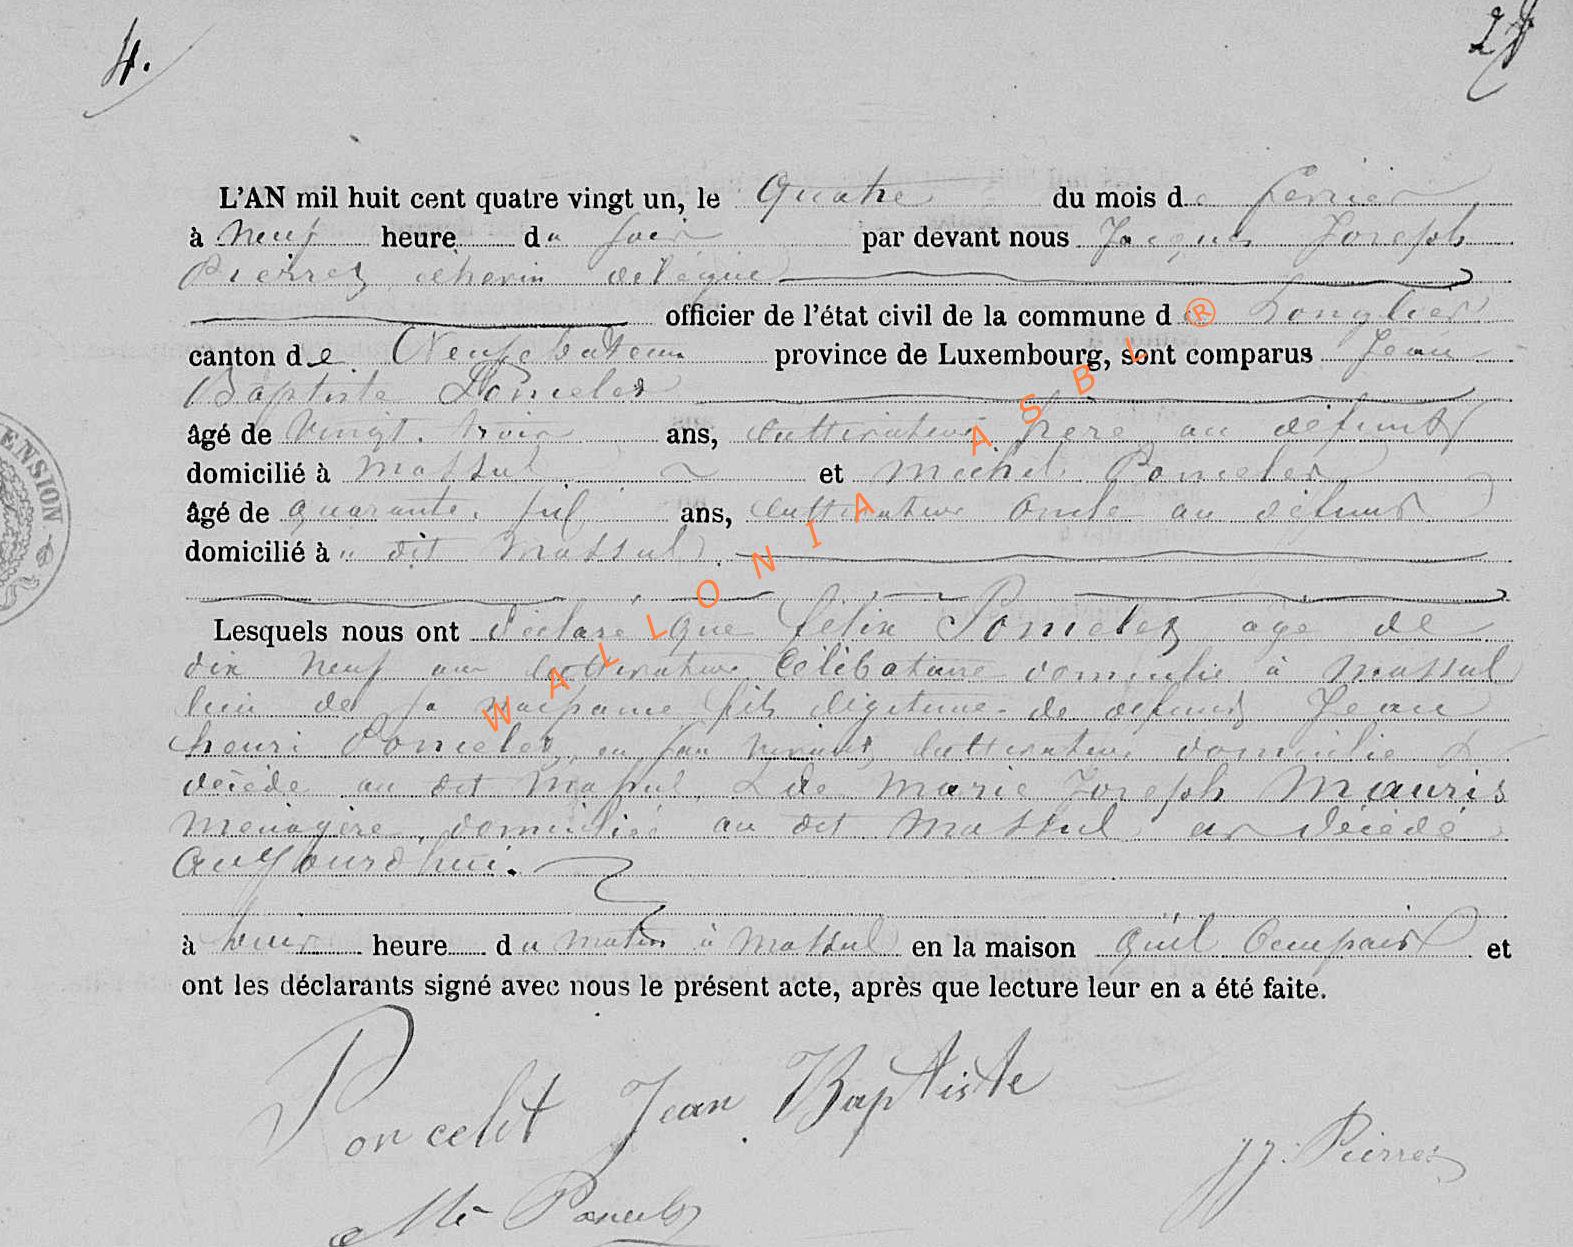 4.
L'AN mil huit cent quatre vingt un, le Quatre du mois de fevrier
à neuf heure du soir par devant nous Jacques Joseph
Pierret échevin délégué
officier de l'état civil de la commune de Longlier
canton de Neufchateau province de Luxembourg, sont comparus Jean
Baptiste Poncelet
âgé de vingt. trois ans, cultivateur frère au défunt
domicilié à Massul et Michel Poncelet
âgé de quarante. ans, cultivateur oncle au défunt
domicilié à u dit Massul
Lesquels nous ont déclaré que félix Poncelet agé de
dix neuf ans cultivateur Célibataire domicilié à Massul
lieu de sa naissance fils légitime de défunt Jean
henri Poncelet, en son vivant cultivateur domicilié &
décédé au dit Massul, & de Marie Joseph Mauris
Ménagère, domiciliée au dit Massul est décédé
aujourd'hui.
à heure du matin à Massul en la maison qu'il occupait et
ont les déclarants signé avec nous le présent acte, après que lecture leur en a été faite.
Poncelet Jean Baptiste
JJ. Pierret
Poncelet
ENSION
WALLONIA ASBL ®